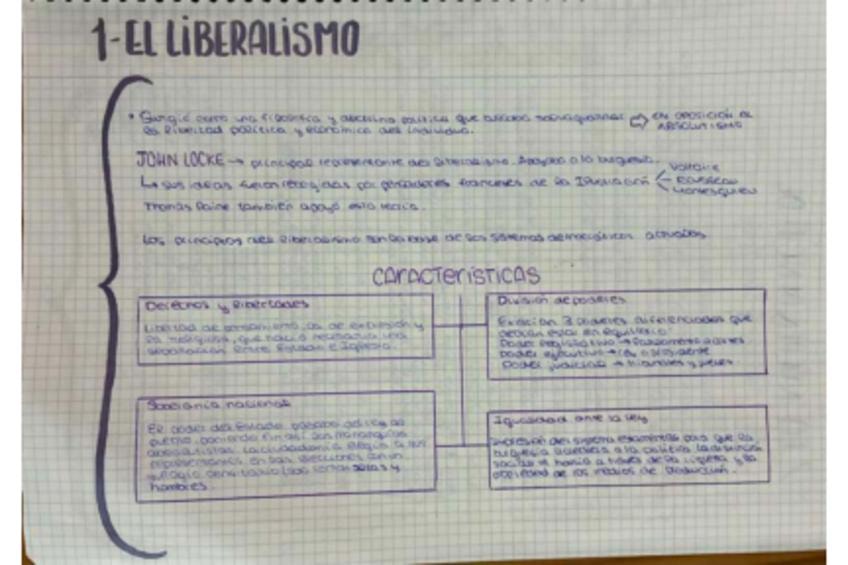 1- EL LIBERALISMO
• Surgió como una filosofía y doctrina política que buscaba salvaguardar ⇨ EN OPOSICIÓN AL
la libertad política y económica del individuo. ABSOLUTISMO
JOHN LOCKE → principal representante del liberalismo. Apoyaba a la burguesía.
↳ sus ideas fueron recogidas por pensadores franceses de la Ilustración
Voltaire
Rousseau
Montesquieu
Thomas Paine también apoyó esta teoría.
Los principios del liberalismo son la base de los sistemas democráticos actuales
CARACTERÍSTICAS
Derechos y libertades
Libertad de pensamiento, de expresión y
la religiosa, que hacía necesaria una
separación entre Estado e Iglesia.
División de poderes
Existían 3 poderes diferenciados que
debían estar en equilibrio:
Poder legislativo → Parlamento
poder ejecutivo → rey o presidente
Poder judicial → tribunales y jueces.
Soberanía nacional
El poder del Estado pasaba del rey al
pueblo, poniendo fin así a las monarquías
absolutistas. La ciudadanía elegía a sus
representantes en las elecciones con un
sufragio
hombres.
Igualdad ante la ley
del sistema estamental para que la
burguesía a la política. La
social se hacía a través de la riqueza y la
propiedad de los medios de producción.